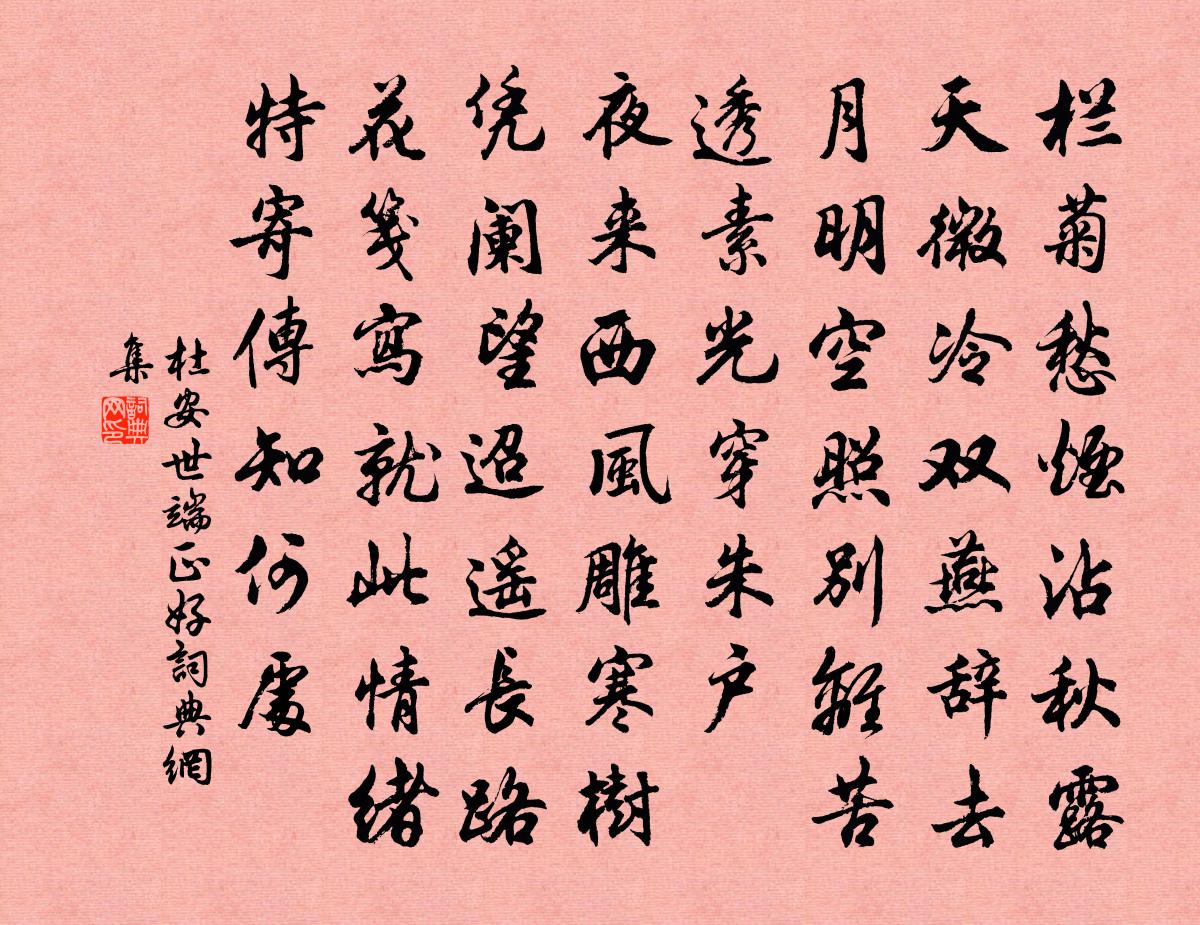 栏菊愁煙沾秋露
天微冷双燕辞去
月明空照別離苦
透素光穿朱户
夜来西風雕寒樹
凭阑望迢遥長路
花箋寫就此情緒
特寄傳知何處
杜安世端正好詞典網
集
詞典
网印